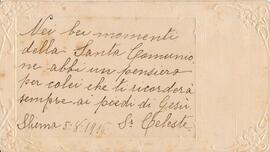 Nei bei momenti
della Santa Comunio
ne abbi un pensiero
per colei che ti ricorderà
sempre ai piedi di Gesù
Sr Celeste